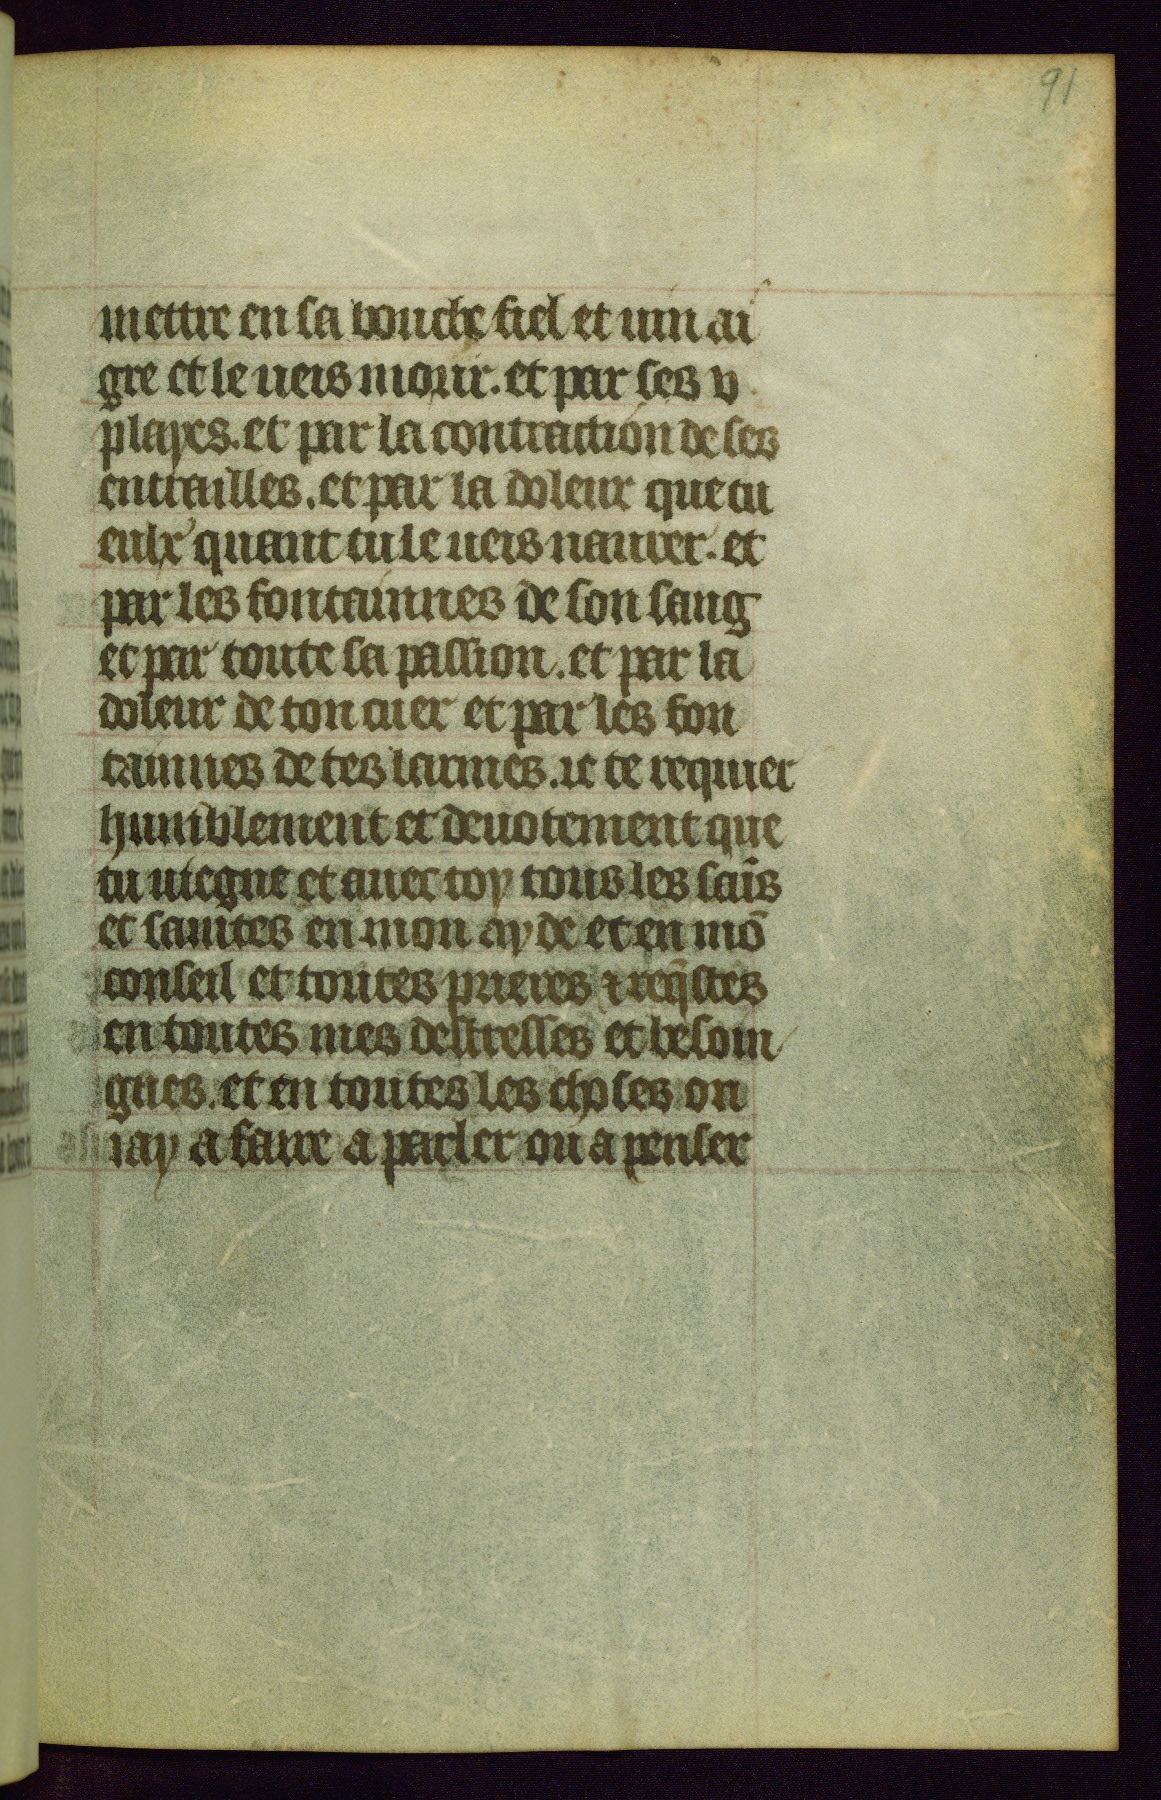 91
mettre en sa bouche fiel et uin ai
gre et le ueis morir. et par ses v
playes. et par la contraction de ses
entrailles. et par la doleur que tu
eulx quant tu le ueis naurer. et
par les fontainnes de son sang
et par toute sa passion. et par la
doleur de ton cuer et par les fon
tainnes de tes larmes. ie te requier
humblement et deuotement que
tu uiegne et auec toy tous les sais̄
et saintes en mon ayde et en mō
conseil et toutes prieres ⁊ req̄stes
en toutes mes destresses et besoin
gnes. et en toutes les choses on
iay a faire a parler ou a penser